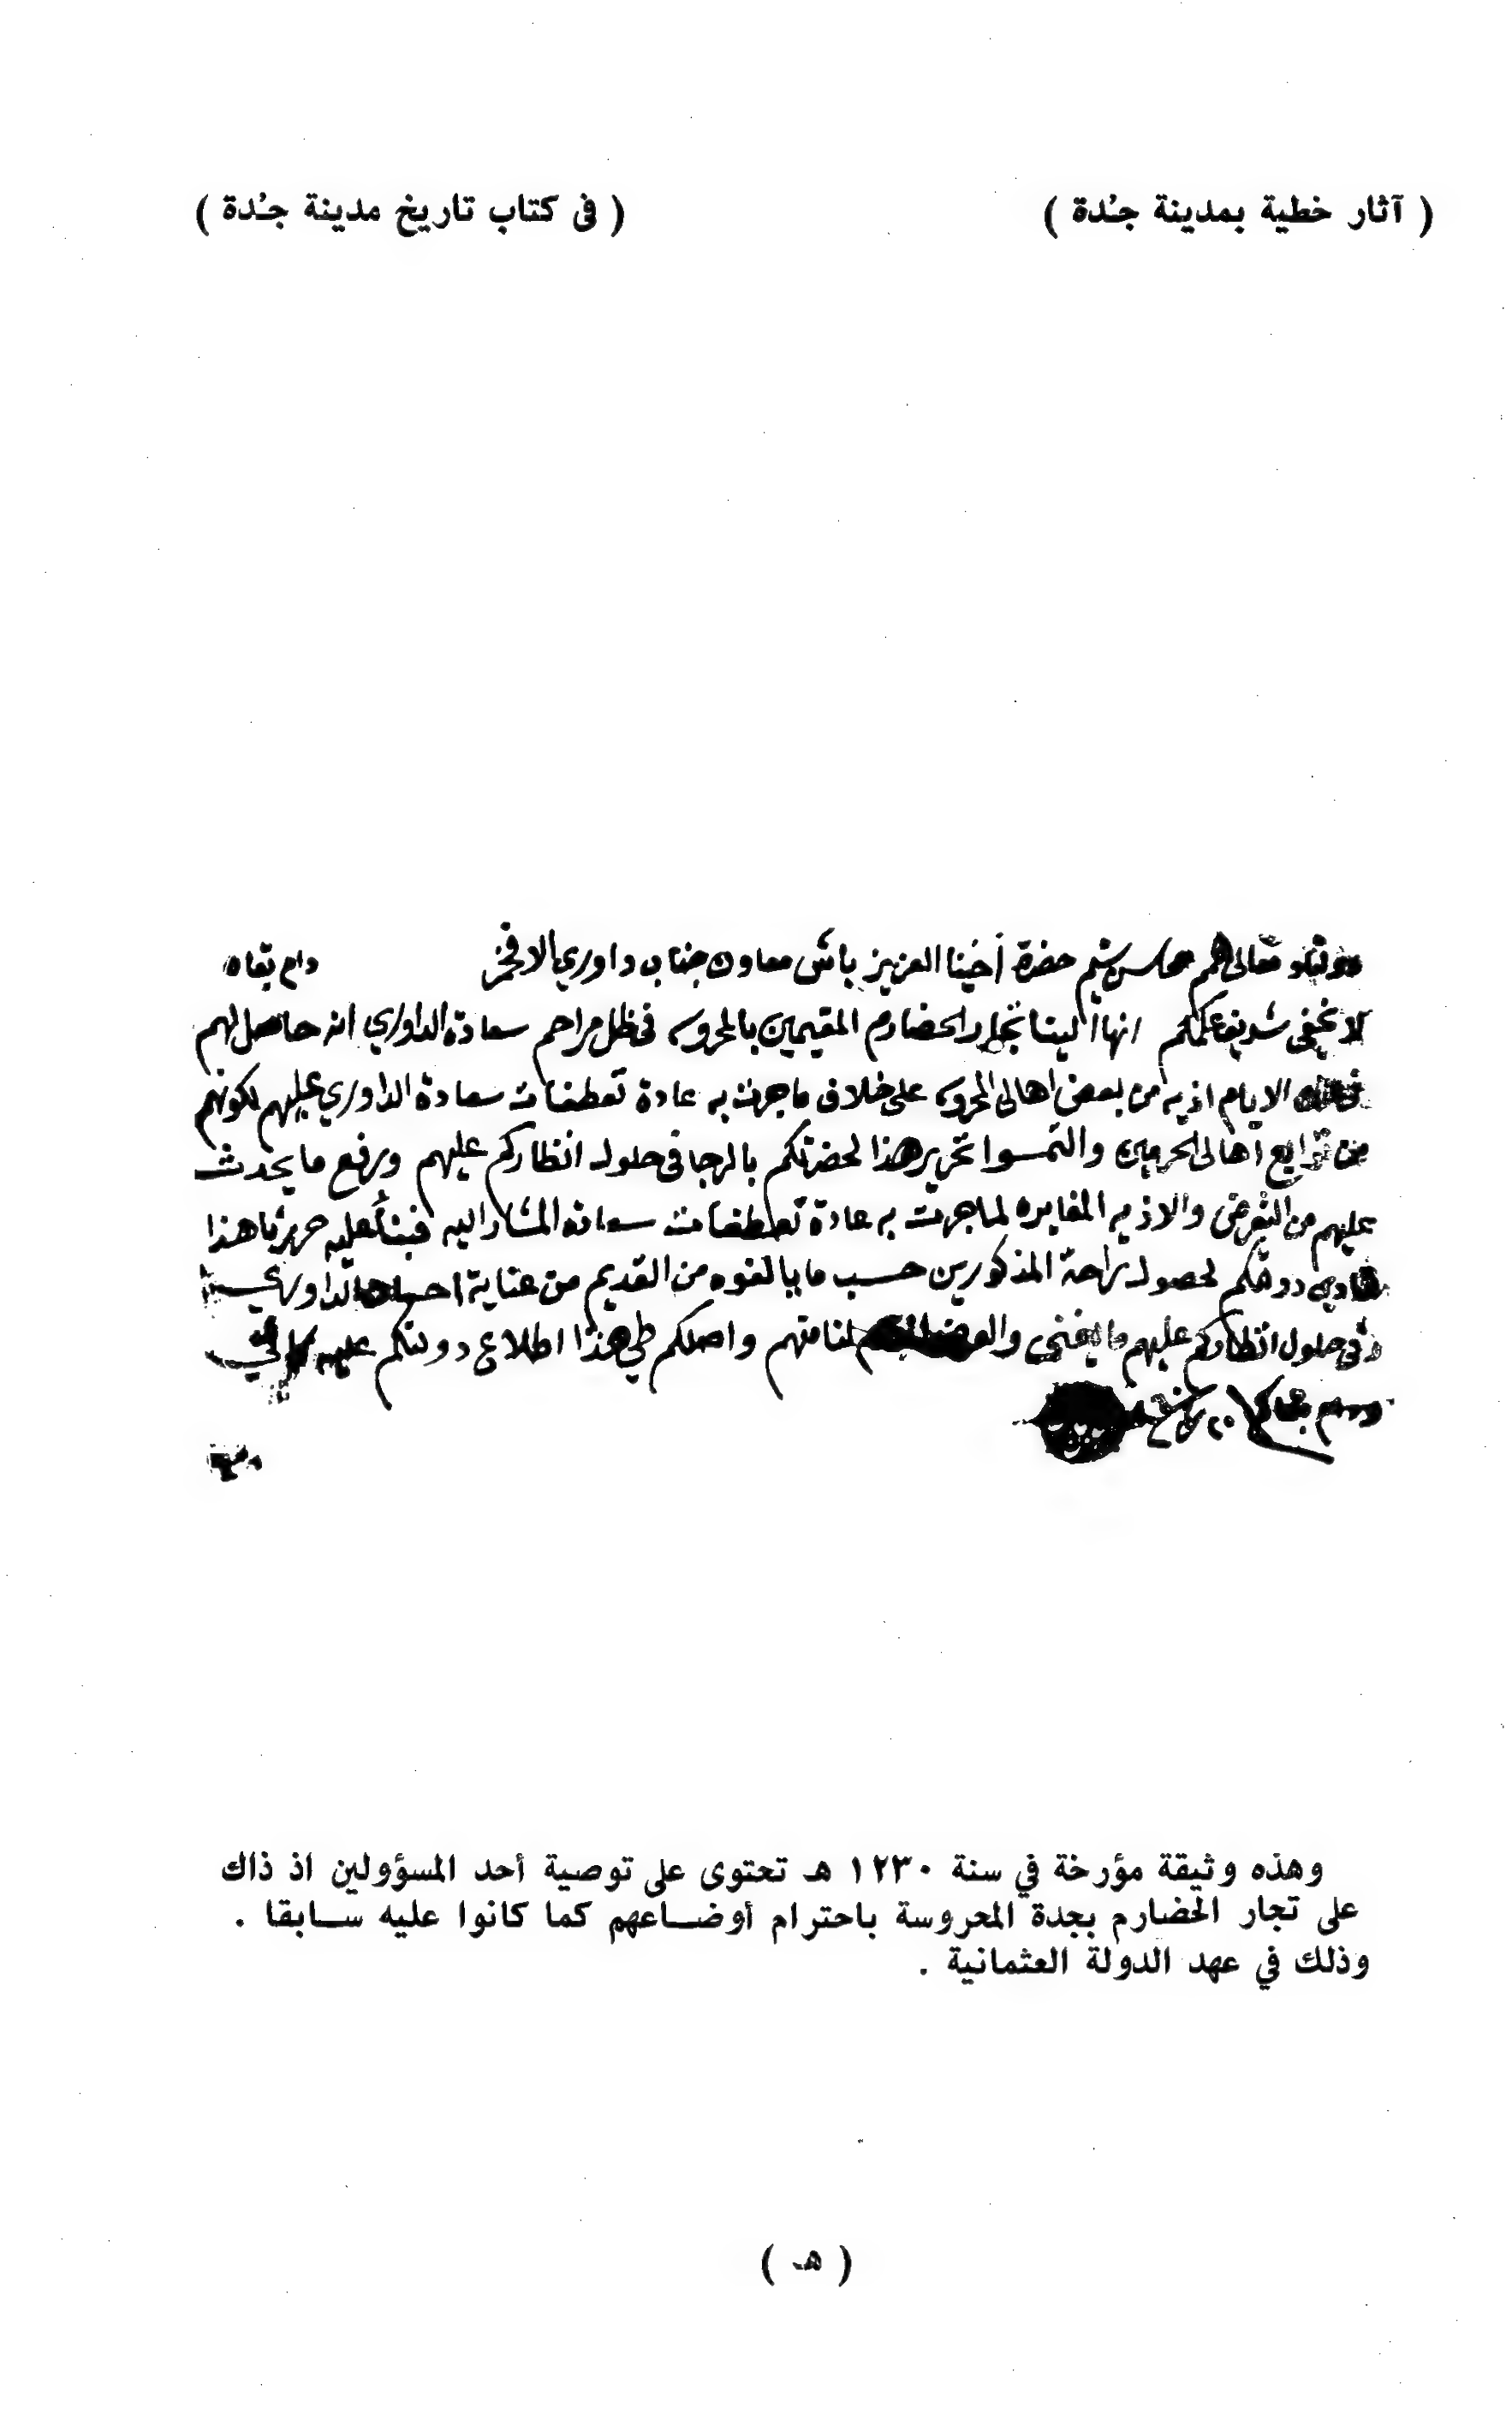 ( آثار خطية بمدينة جُدة ) ( فى كتاب تاريخ مدينة جُدة )
دولتلو تعالى همم محاسن شيم حضرة أخينا العزيز باش معاون جناب داوري الافخر دام بقاه
لا تخفى شريف علمكم انها الينا تجار الحضارم المقيمين بالمحروسه فى ظل مراحم سعادة الداوري انه حاصل لهم
الايام اذيه من بعض اهالى المحروسه على خلاف ما جرت به عادة تعطفات سعادة الداوري عليهم لكونهم
من توابع اهالى الحرمين والتمسوا تحرير هذا لحضرتكم بالرجا فى حلول انظاركم عليهم ورفع ما يحدث
عليهم من التعرض والاذيه المغايره لما جرت به عادة تعطفات سعادة المشار اليه فبناً عليه حررنا هذا
دولتكم لحصول راحة المذكورين حسب ما يالفوه من القديم من عناية الداوري
فى حلول انظاركم عليهم لنا منهم واصلكم طي هذا اطلاع دولتكم عليه
ودام بقاكم
وهذه وثيقة مؤرخة في سنة ١٢٣٠ هـ تحتوى على توصية أحد المسؤولين اذ ذاك
على تجار الحضارم بجدة المحروسة باحترام أوضـاعهم كما كانوا عليه سـابقا .
وذلك في عهد الدولة العثمانية .
( هـ )